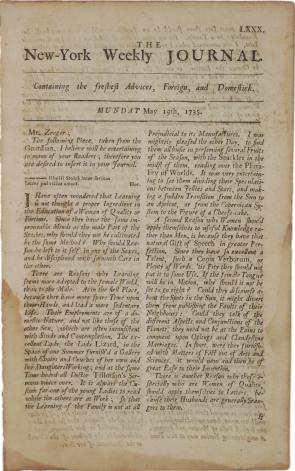 LXXX.
THE
New-York Weekly JOURNAL.
Containing the freshest Advices, Foreign, and Domestick.
MUNDAY May 19th, 1735.
Mr. Zenger;
The following Piece, taken from the
Guardian, I believe will be entertaining
to many of your Readers; therefore you
are desired to insert it in your Journal.
Hor.
I Have often wondered that Learning
is not thought a proper Ingredient in
the Education of a Woman of Quality or
Fortune. Since they have the same im-
proveable Minds as the male Part of the
Species, why should they not be cultivated
by the same Method? Why should Rea-
son be left to it self in one of the Sexes,
and be disciplined with so much Care in
the other.
There are Reasons why Learning
seems more adapted to the female World,
than to the Male. As in the first Place,
because they have more spare Time upon
their Hands, and lead a more sedentary
Life. Their Employments are of a do-
mestick Nature, and not like those of the
other Sex, which are often inconsistent
with Study and Contemplation. The ex-
cellent Lady, the Lady Lizard, in the
Space of one Summer furnish'd a Gallery
with Chairs and Couches of her own and
her Daughters Working; and at the same
Time heard all Doctor Tillotson's Ser-
mons twice over. It is always the Cus-
tom for one of the young Ladies to read
while the others are at Work; so that
the Learning of the Family is not at all
Prejudicial to its Manufactures. I was
mightily pleased the other Day, to find
them all busie in preserving several Fruits
of the Season, with the Sparkler in the
midst of them, reading over the Plura-
lity of Worlds. It was very entertain-
ing to me to see them dividing their Specu-
lations between Jellies and Stars, and mak-
ing a sudden Transition from the Sun to
an Apricot, or from the Copernican Sys-
tem to the Figure of a Cheese-Cake.
A second Reason why Women should
apply themselves to useful Knowledge ra-
ther than Men, is because they have that
natural Gift of Speech in greater Per-
fection. Since they have so excellent a
Talent, such a Copia Verborum, or
Plenty of Words, 'tis Pity they should not
put it to some Use. If the female Tongue
will be in Motion, why should it not be
set to go right? Could they discourse a-
bout the Spots in the Sun, it might divert
them from publishing the Faults of their
Neighbours: Could they talk of the
different Aspects and Conjunctions of the
Planets, they need not be at the Pains to
comment upon Oglings and Clandestine
Marriages. In short, were they furnish-
ed with Matters of Fact out of Arts and
Sciences, it would now and then be of
great Ease to their Invention.
There is another Reason why those es-
pecially who are Women of Quality,
should apply themselves to Letters, be-
cause their Husbands are generally Stran-
gers to them.